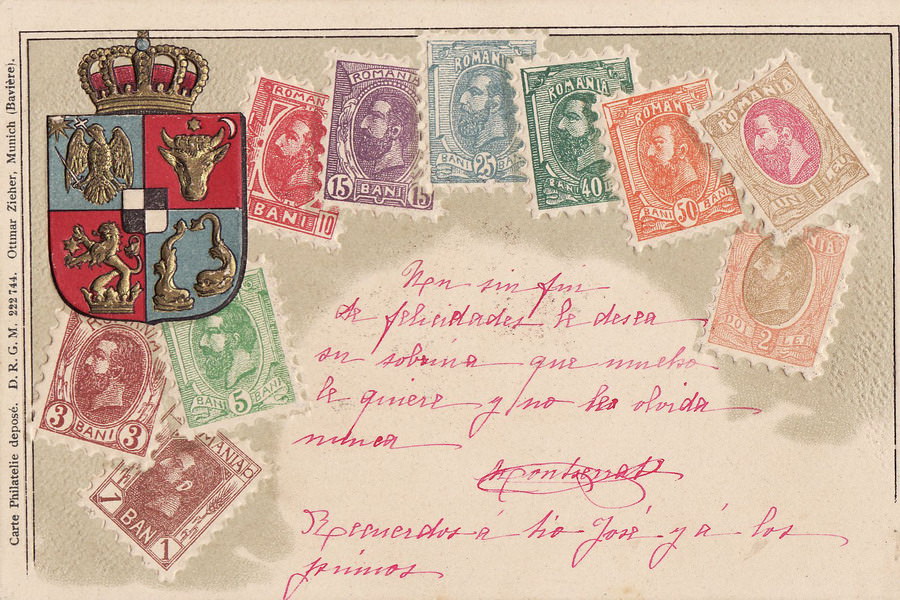 Carte Philatelie deposé. D. R. G. M. 222 744. Ottmar Zieher, Munich (Bavière).
ROMANIA
BANI 10
ROMANIA
15 BANI 15
ROMANIA
BANI 25
ROMANIA
BANI 40
ROMANIA
BANI 50 BANI
ROMANIA
UN LEU
DOI 2 LEI
ROMANIA
3 BANI 3
BANI 5 BANI
1 BAN 1
Un sin fin
de felicidades le desea
su sobrina que mucho
le quiere y no les olvida
nunca
Montserrat
Recuerdos á tio José y á los
primos